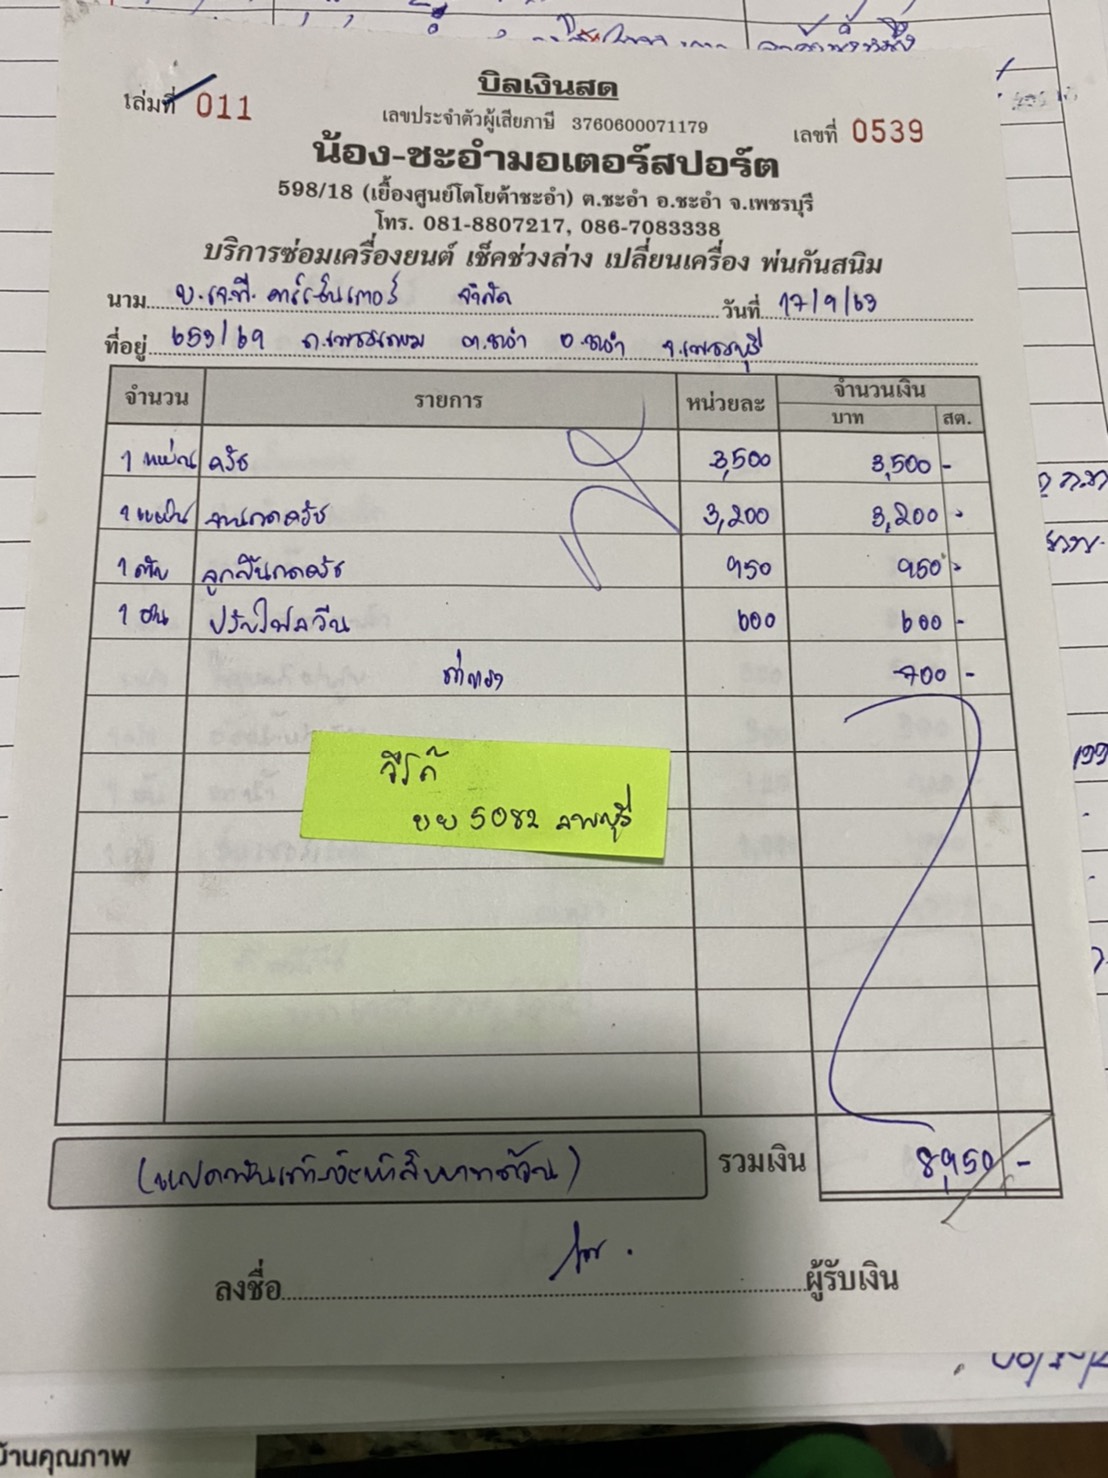 บิลเงินสด
เล่มที่ 011
เลขประจำตัวผู้เสียภาษี 3760600071179
เลขที่ 0539
น้อง-ชะอำมอเตอร์สปอร์ต
598/18 (เยื้องศูนย์โตโยต้าชะอำ) ต.ชะอำ อ.ชะอำ จ.เพชรบุรี
โทร. 081-8807217, 086-7083338
บริการซ่อมเครื่องยนต์ เช็คช่วงล่าง เปลี่ยนเครื่อง พ่นกันสนิม
นาม บ.เจ.พี. คาร์เซ็นเตอร์ จำกัด วันที่ 17/9/63
ที่อยู่ 659/69 ถ.เพชรเกษม ต.ชะอำ อ.ชะอำ จ.เพชรบุรี
จำนวน รายการ หน่วยละ จำนวนเงิน
บาท สต.
1 แผ่น ครัช 3,500 3,500 -
1 แผ่น จานกดครัช 3,200 3,200 -
1 ตลับ ลูกปืนกดครัช 950 950 -
1 อัน ฟลายวีน 600 600 -
ค่าแรง 700 -
วีโก้
บบ 5082 ลพบุรี
(แปดพันเก้าร้อยห้าสิบบาทถ้วน) รวมเงิน 8,950 -
ลงชื่อ ผู้รับเงิน
บ้านคุณภาพ